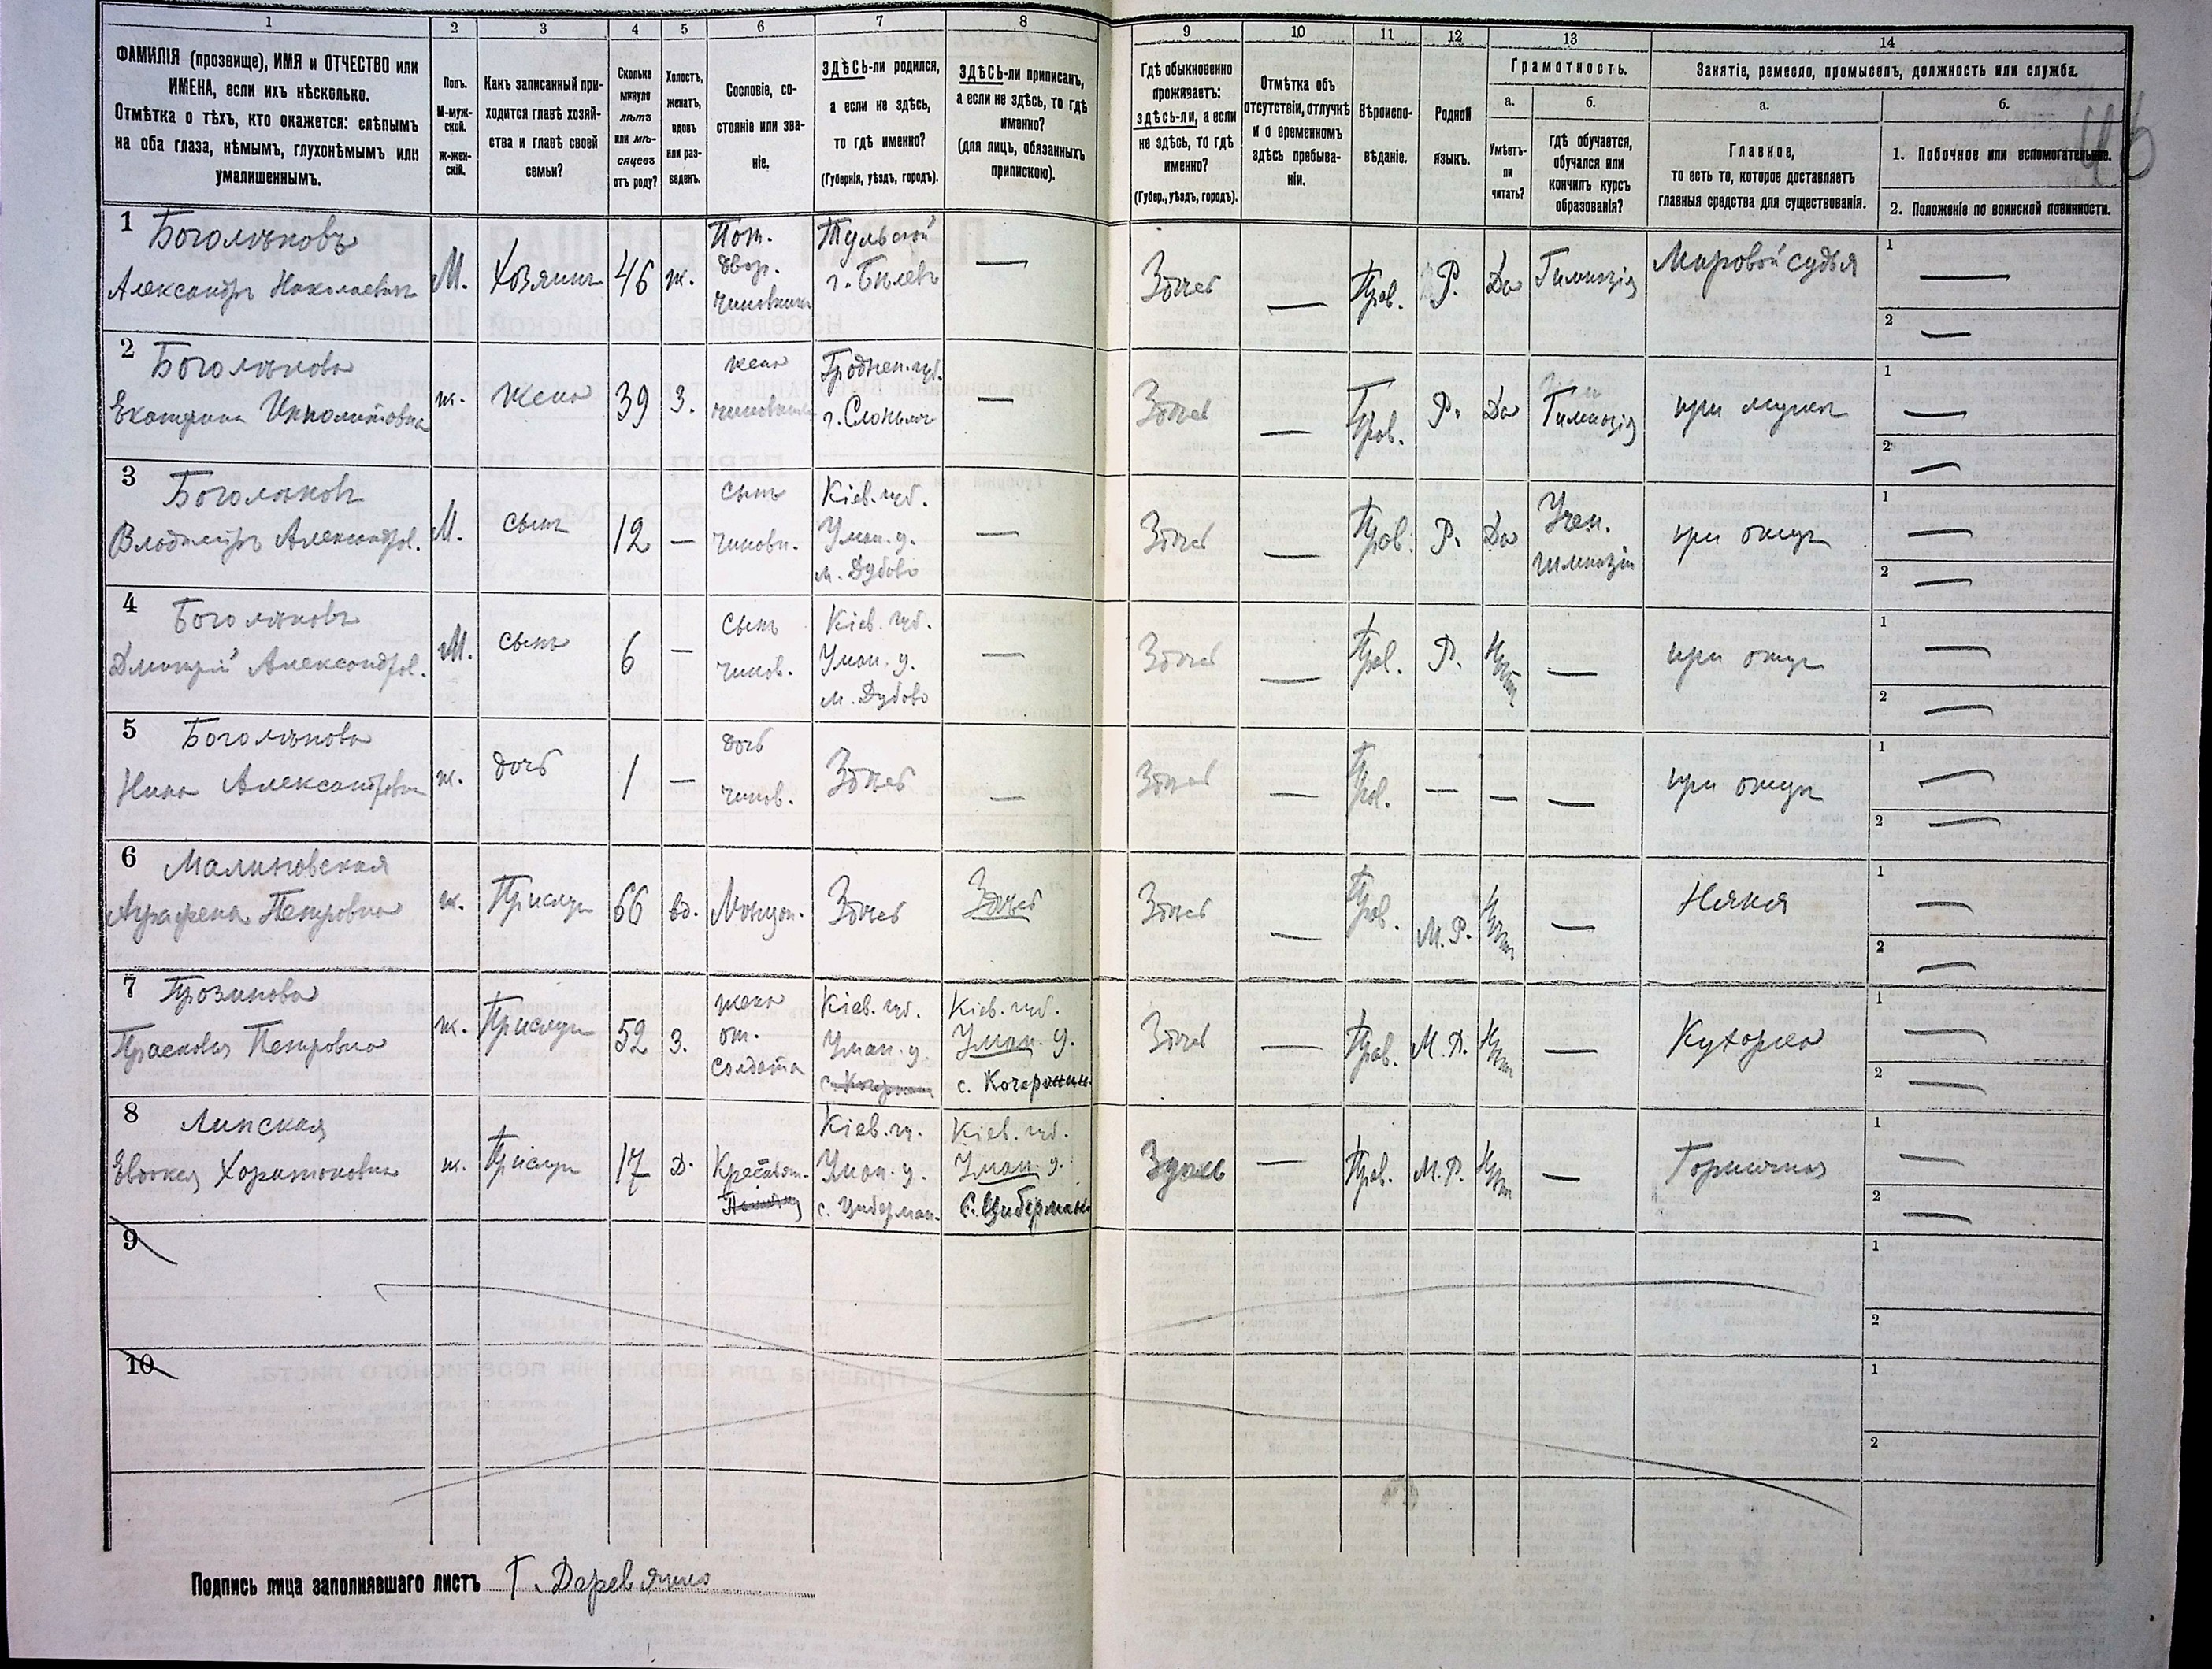 1 2 3 4 5 6 7 8 9 10 11 12 13 14
ФАМИЛІЯ (прозвище), ИМЯ и ОТЧЕСТВО или
ИМЕНА, если ихъ нѣсколько.
Отмѣтка о тѣхъ, кто окажется: слѣпымъ
на оба глаза, нѣмымъ, глухонѣмымъ или
умалишеннымъ.
Полъ.
М-муж-
ской.
ж-жен-
скій.
Какъ записанный при-
ходится главѣ хозяй-
ства и главѣ своей
семьи?
Сколько
минуло
лѣтъ
или мѣ-
сяцевъ
отъ роду?
Холостъ,
женатъ,
вдовъ
или раз-
веденъ.
Сословіе, со-
стояніе или зва-
ніе.
ЗДѢСЬ-ли родился,
а если не здѣсь,
то гдѣ именно?
(Губернія, уѣздъ, городъ).
ЗДѢСЬ-ли приписанъ,
а если не здѣсь, то гдѣ
именно?
(для лицъ, обязанныхъ
припискою).
Гдѣ обыкновенно
проживаетъ:
здѣсь-ли, а если
не здѣсь, то гдѣ
именно?
(Губер., уѣздъ, городъ).
Отмѣтка объ
отсутствіи, отлучкѣ
и о временномъ
здѣсь пребыва-
ніи.
Вѣроиспо-
вѣданіе.
Родной
языкъ.
Грамотность.
а.
Умѣетъ-
ли
читать?
б.
гдѣ обучается,
обучался или
кончилъ курсъ
образованія?
Занятіе, ремесло, промыселъ, должность или служба.
а.
Главное,
то есть то, которое доставляетъ
главныя средства для существованія.
б.
1. Побочное или вспомогательное.
2. Положеніе по воинской повинности.
1 Боголѣповъ
Александръ Николаевичъ
М. Хозяинъ 46 ж.
Пот.
двор.
чиновникъ
Тульской
г. Бѣлевъ
—
Здѣсь — Прав. Р. Да Гимназія Мировой судья
1 —
2 —
2 Боголѣпова
Екатерина Ипполитовна
ж. жена 39 З.
жена
чиновника
Гроднен. губ.
г. Слонимъ
—
Здѣсь — Прав. Р. Да Гимназія при мужѣ
1 —
2 —
3 Боголѣповъ
Владиміръ Александров.
М. сынъ 12 —
сынъ
чиновн.
Кіев. губ.
Уман. у.
м. Дубово
—
Здѣсь — Прав. Р. Да
Учен.
гимназіи
при отцѣ
1 —
2 —
4 Боголѣповъ
Дмитрій Александров.
М. сынъ 6 —
сынъ
чинов.
Кіев. губ.
Уман. у.
м. Дубово
—
Здѣсь — Прав. Р. Нѣтъ — при отцѣ
1 —
2 —
5 Боголѣпова
Нина Александровна
ж. дочь 1 —
дочь
чинов.
Здѣсь —
Здѣсь — Прав. — — — при отцѣ
1 —
2 —
6 Малиновская
Аграфена Петровна
ж. Прислуг. 66 вд. Мѣщан. Здѣсь Здѣсь
Здѣсь — Прав. М. Р. Нѣтъ — Няня
1 —
2 —
7
Прасковья Петровна
ж. Прислуг. 52 З.
жена
от.
солдата
Кіев. губ.
Уман. у.
Кіев. губ.
Уман. у.
с. Кочержин.
Здѣсь — Прав. М. Р. Нѣтъ — Кухарка
1 —
2 —
8 Липская
Евдокія Харитоновна
ж. Прислуг. 17 Д. Крестьян.
Кіев. г.
Уман. у.
с. Циберман.
Кіев. губ.
Уман. у.
с. Циберман.
Здѣсь — Прав. М. Р. Нѣтъ — Горничная
1 —
2 —
9
1
2
10
1
2
Подпись лица заполнявшаго листъ Г. Деревянко